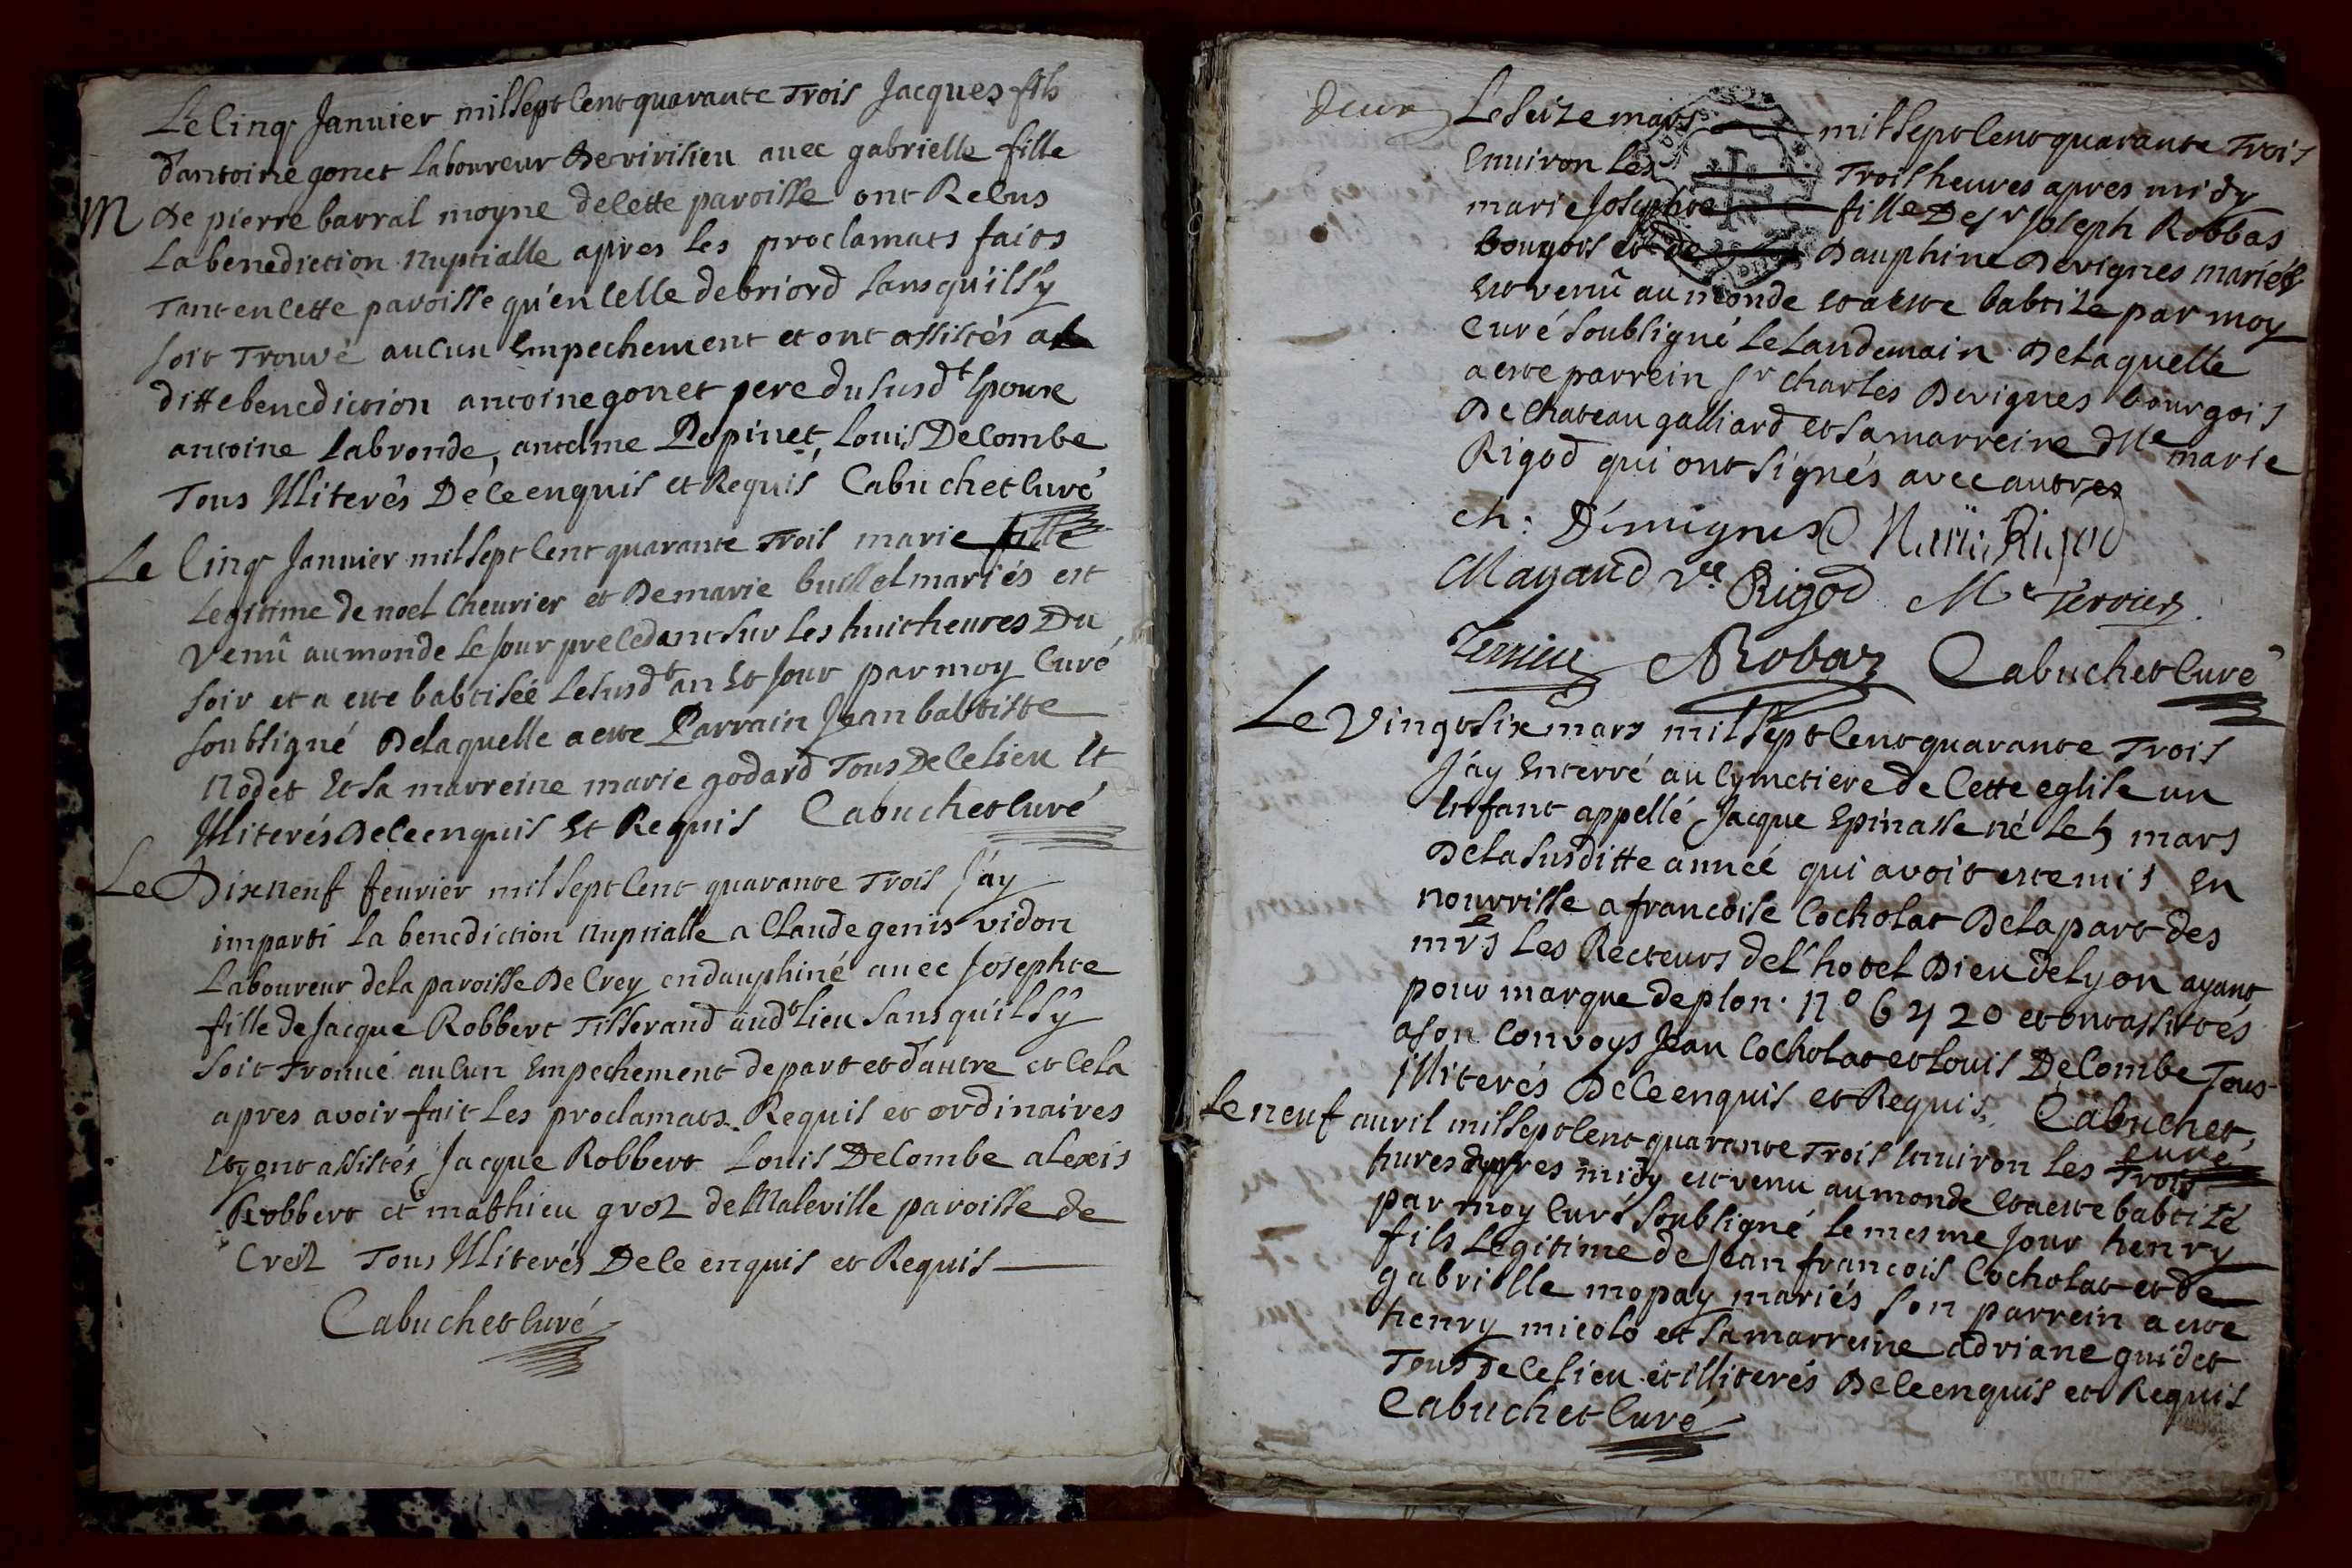 Le cinq Janvier mil sept cent quarante Trois Jacques fils
d'antoine gonet laboureur de virisieu avec gabrielle fille
M De pierre barral moyne de cette paroisse ont Recus
La benediction nuptialle apres les proclamats faits
Tant en cette paroisse qu'en celle de briord sans qu'il s'y
soit Trouvé aucun Empechement et ont assistés a la
ditte benediction antoine gonet pere du susdt Epoux
antoine labronde, antelme Pepinet, Louis Decombe
Tous Illiterés De ce enquis et Requis Cabuchet curé
Le cinq Janvier mil sept cent quarante Trois marie fille
Legitime de noel cheurier et De marie buissel mariés est
venû au monde le Jour precedant sur les huit heures Du
soir et a ete babtisée le susdt an et Jour par moy curé
soubsigné De laquelle a ete Parrain Jean babtiste
nodet et sa marreine marie godard Tous De ce lieu et
Illiterés De ce enquis et Requis Cabuchet curé
Le Dixneuf feurier mil sept cent quarante Trois J'ay
imparti la benediction nuptialle a claude genis vidon
Laboureur de la paroisse De Crey en dauphiné avec Josephte
fille de Jacque Robbert Tisserand audt lieu sans qu'il s'y
soit trouvé aucun Empechement de part et d'autre et cela
apres avoir fait les proclamats Requis et ordinaires
et y ont assistés Jacque Robbert Louis Decombe alexis
Robbert et mathieu groz de Maleville paroisse de
Creiz Tous Illiterés De ce enquis et Requis
Cabuchet curé
Le seize mars mil sept cent quarante Trois
Environ les Trois heures apres midy
marie Josephte fille De sr Joseph Robbas
bougois et de Dauphine Devignes mariés
est venû au monde et a ete babtize par moy
curé soubsigné le landemain De laquelle
a ete parrein sr charles Devignes bourgois
De chateau galliard et sa marreine dlle marie
Rigod qui ont signés avec autres
ch: Dévuignes Marie Rigod
Mayand ve Rigod Me Tervier
Robaz Cabuchet curé
Le vingt six mars mil sept cent quarante Trois
J'ay Enterré au cymetiere de cette eglise un
Enfant appellé Jacque Epinasse né le 5 mars
De la susditte année qui avoit ete mis en
nourrisse a francoise Cocholat De la part des
mrs les Recteurs de l'hotel Dieu de Lyon ayant
pour marque de plon. no 6420 et ont assistés
a son convoys Jean Cocholat et Louis Decombe Tous
Illiterés De ce enquis et Requis. Cabuchet,
curé
Le neuf auril mil sept cent quarante Trois Environ les Trois
hures appres midy est venu au monde et a ete babtizé
par moy curé soubsigné le mesme Jour henry
fils Legitime de Jean francois Cocholat et de
gabrielle mopay mariés son parrein a ete
henry micolo et sa marreine adriane guidet
Tous de ce lieu et illiterés De ce enquis et Requis
Cabuchet curé